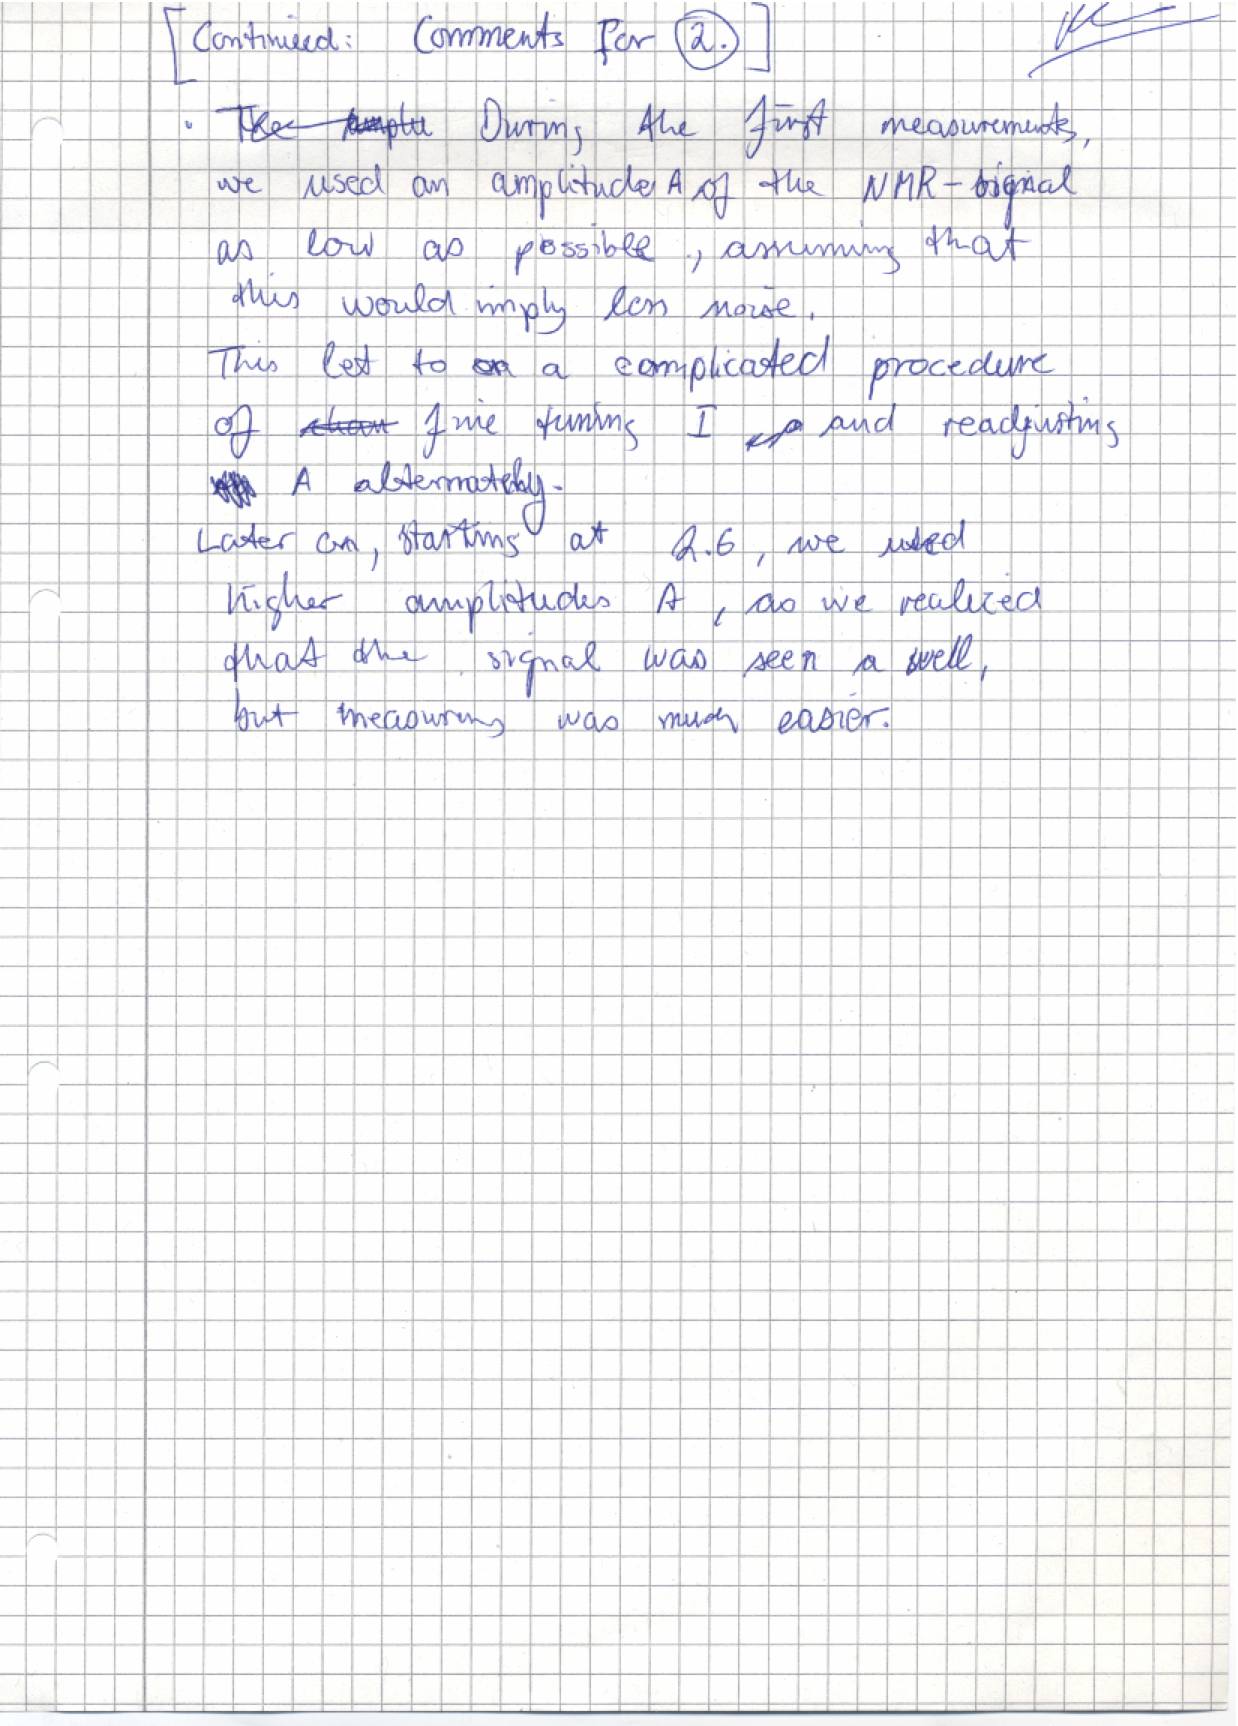 [Continued: Comments for 2.]
· The amplu During the first measurements,
we used an amplitude A of the NMR-signal
as low as possible, assuming that
this would imply less noise.
This let to a complicated procedure
of fine tuning I and readjusting
A alternately.
Later on, starting at 2.6, we used
higher amplitudes A, as we realized
that the signal was seen a well,
but measuring was much easier.